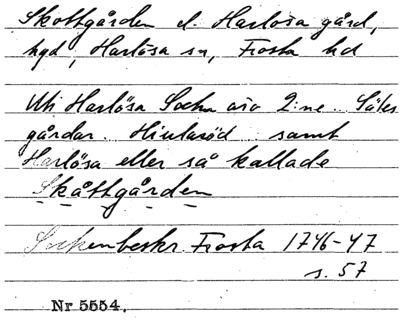 Skottgården el. Harlösa gård,
hgd, Harlösa sn, Frosta hd
Uti Harlösa Sochn äro 2:ne Säles
gårdar. Hiularöd samt
Harlösa eller så kallade
Skåttgården
Sockenbeskr. Frosta 1746-47
s. 57
Nr 5554.